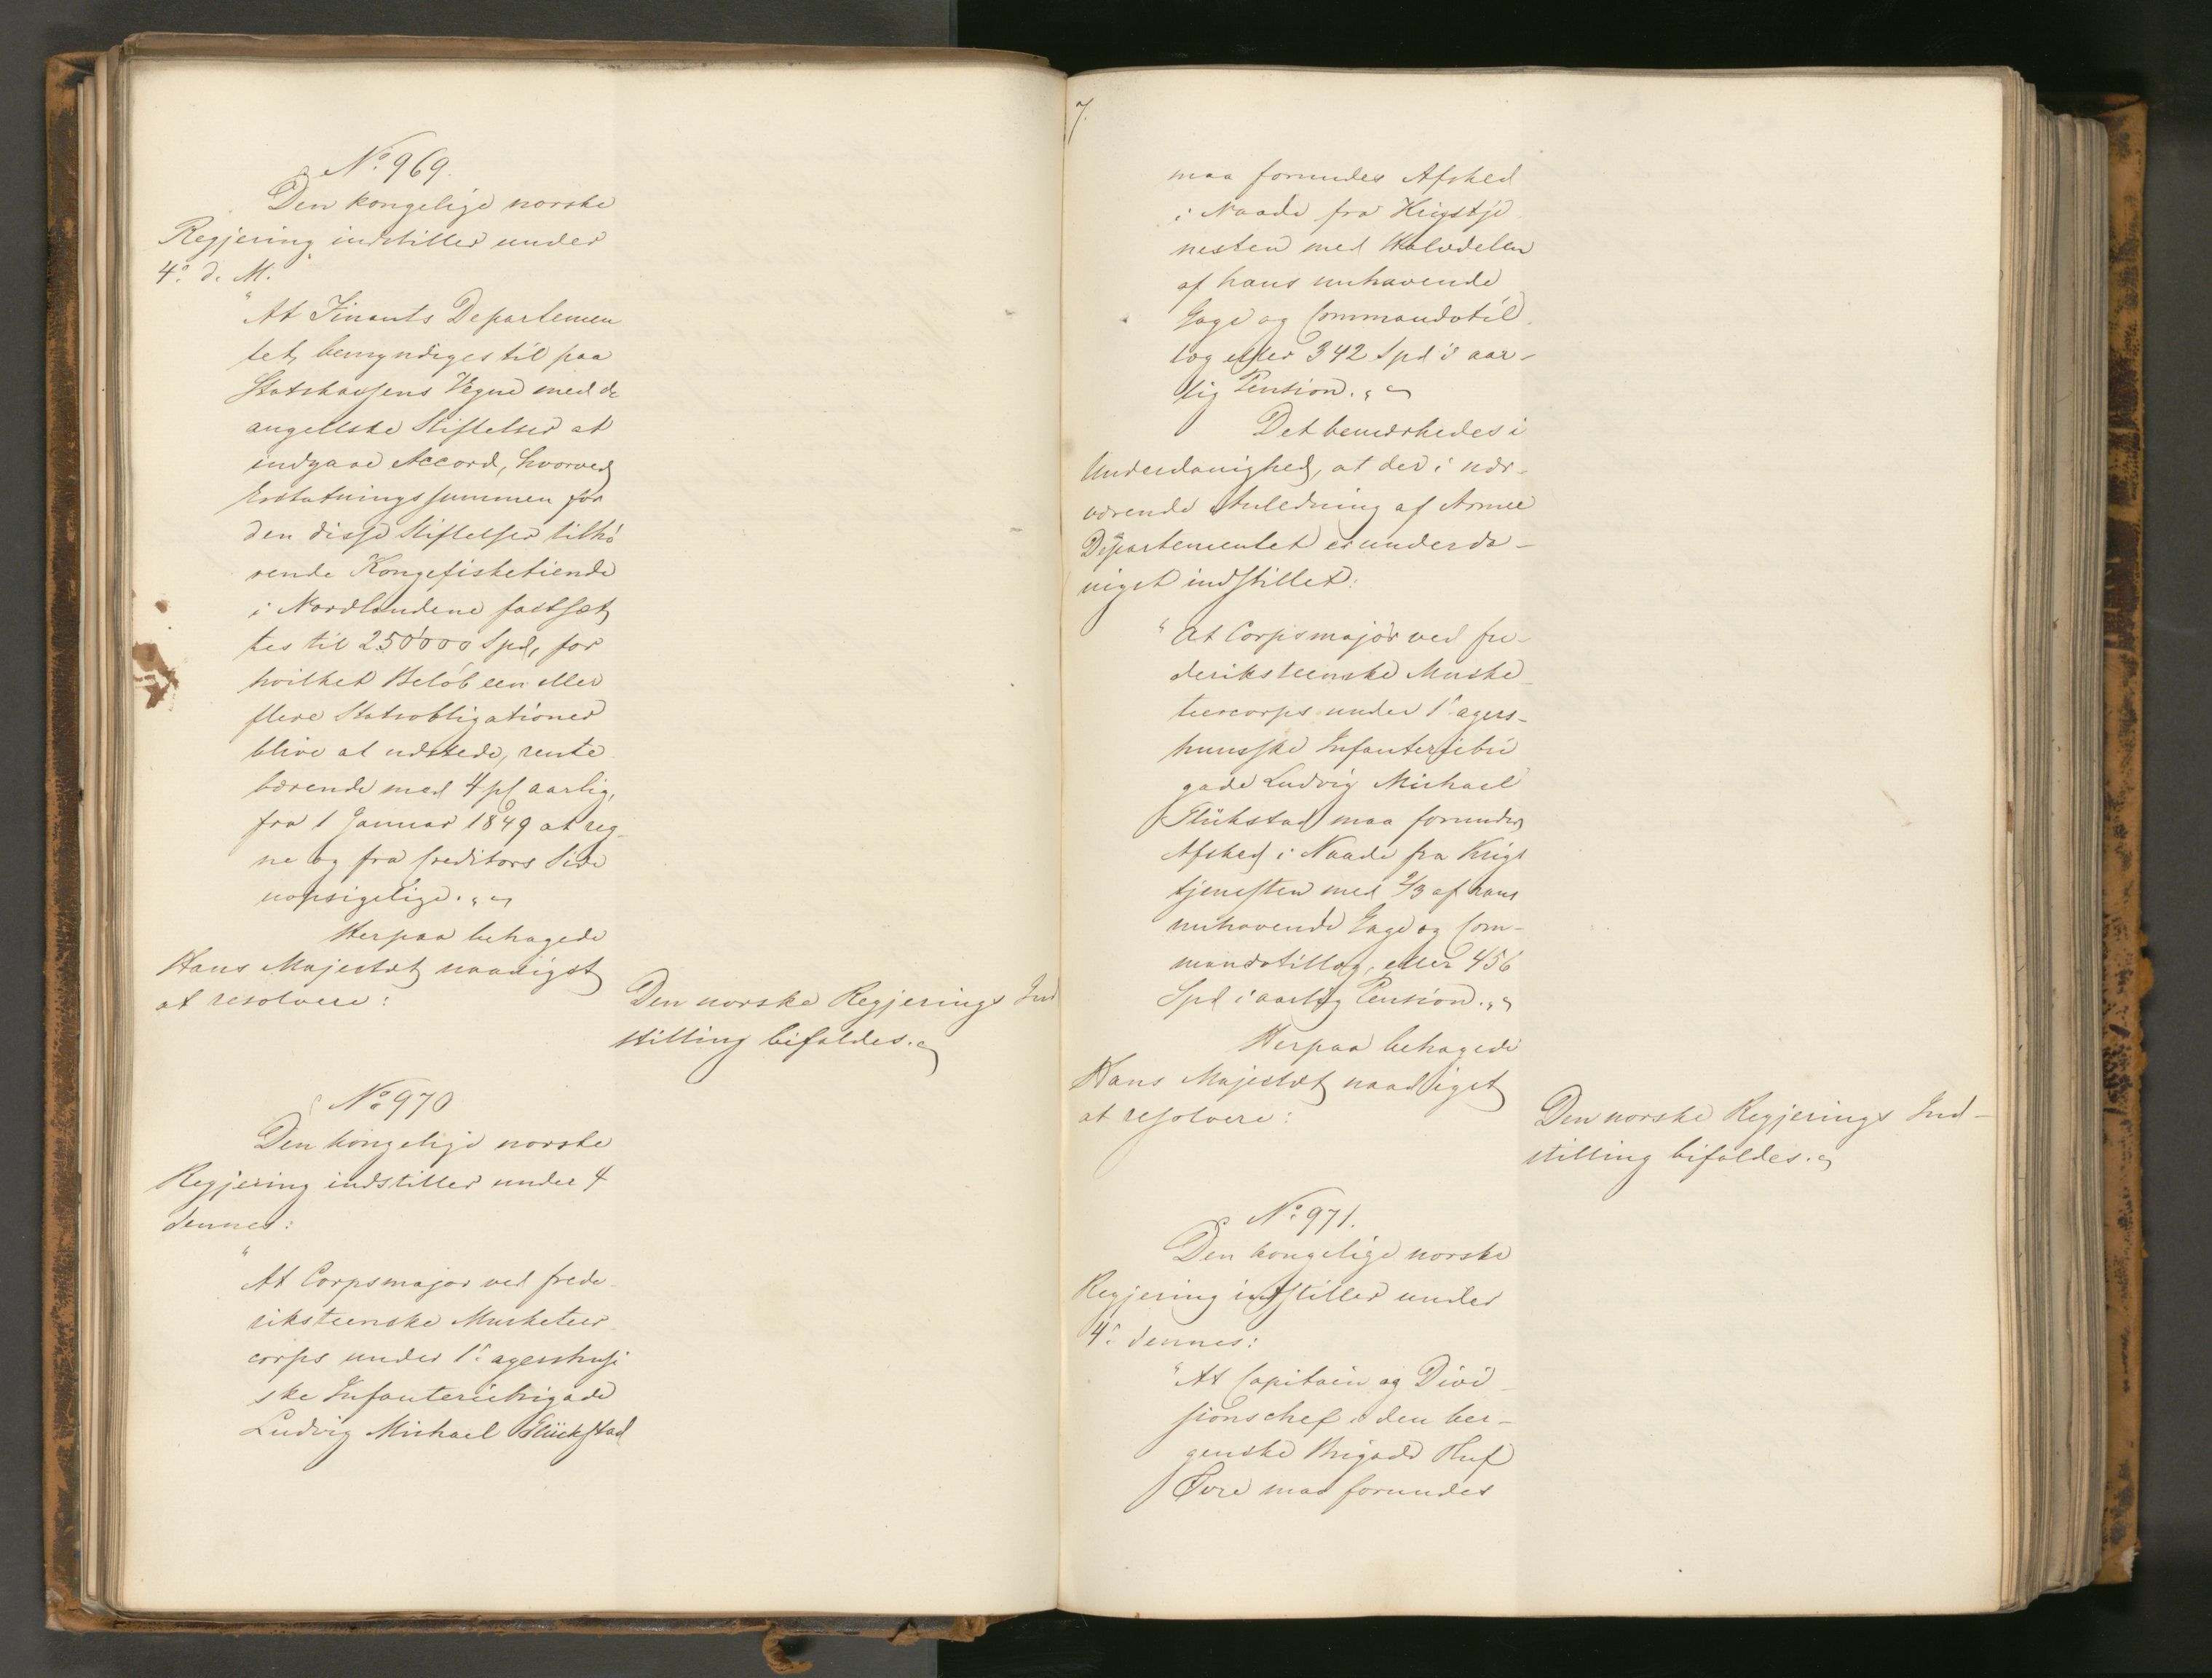 No. 969.
Den kongelige norske
Regjering indstiller under
4de d. M.
"At Finants Departemen
tet, bemyndiges til paa
Statskassens Vegne med de
angeldte Stiftelser at
indgaae Accord, hvorved
Erstatningssummen for
den disse Stiftelser tilhø
rende Kongefisketiende
i Nordlandene fastsæt
tes til 250'000 Spd, for
hvilket Beløb een eller
flere Statsobligationer
blive at udstede, rente
bærende med 4 pC aarlig,
fra 1 Januar 1849 at reg-
ne og fra Creditors Side
uopsigelige."
Herpaa behagede
Hans Majestæt naadigst
at resolvere:
Den norske Regjerings Ind
stilling bifaldes.
No. 970
Den kongelige norske
Regjering indstiller under 4
dennes:
"At Corpsmajor ved frede
riksteenske Musketeer
corps under 1ste agershusi
ske Infanteriebrigade
Ludvig Michael Glückstad
7.
maa forundes Afsked
i Naade fra Krigstje
nesten med Halvdelen
af hans nuhavende
Gage og Commandotil
læg eller 342 Spd i aar-
lig Pension."
Det bemærkedes i
Underdanighed, at der i nær-
værende Anledning af Armee
Departementet er underda-
nigst indstillet:
"At Corpsmajor ved fre-
deriksteenske Muske-
teercorps under 1ste agers-
huusske Infanteriebri
gade Ludvig Michael
Glückstad maa forundes
Afsked i Naade fra Krigs
tjenesten med 2/3 af hans
nuhavende Gage og Com-
mandotillæg, eller 456
Spd i aarlig Pension."
Herpaa behagede
Hans Majestæt naadigst
at resolvere:
Den norske Regjerings Ind-
stilling bifaldes.
No. 971.
Den kongelige norske
Regjering indstiller under
4de dennes:
"At Capitain og Divi-
sionschef i den ber-
genske Brigade Oluf
Øvre maa forundes